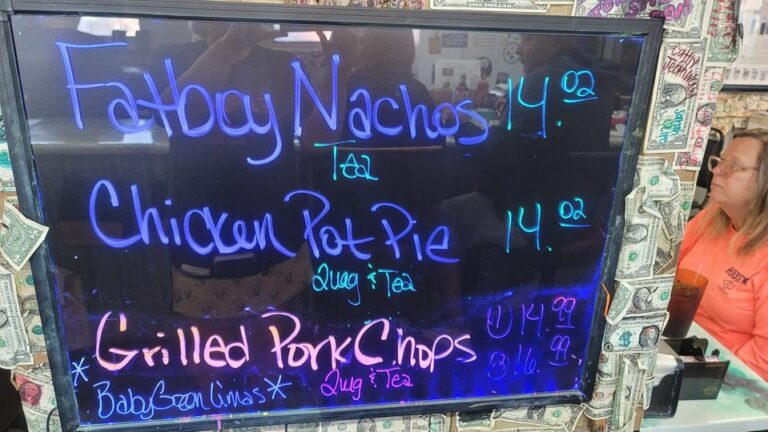 Fatboy Nachos 14.02
Tea
Chicken Pot Pie 14.02
2veg & Tea
Grilled Pork Chops ① 14.99
② 16.99
2veg & Tea
*BabyGreen Limas*